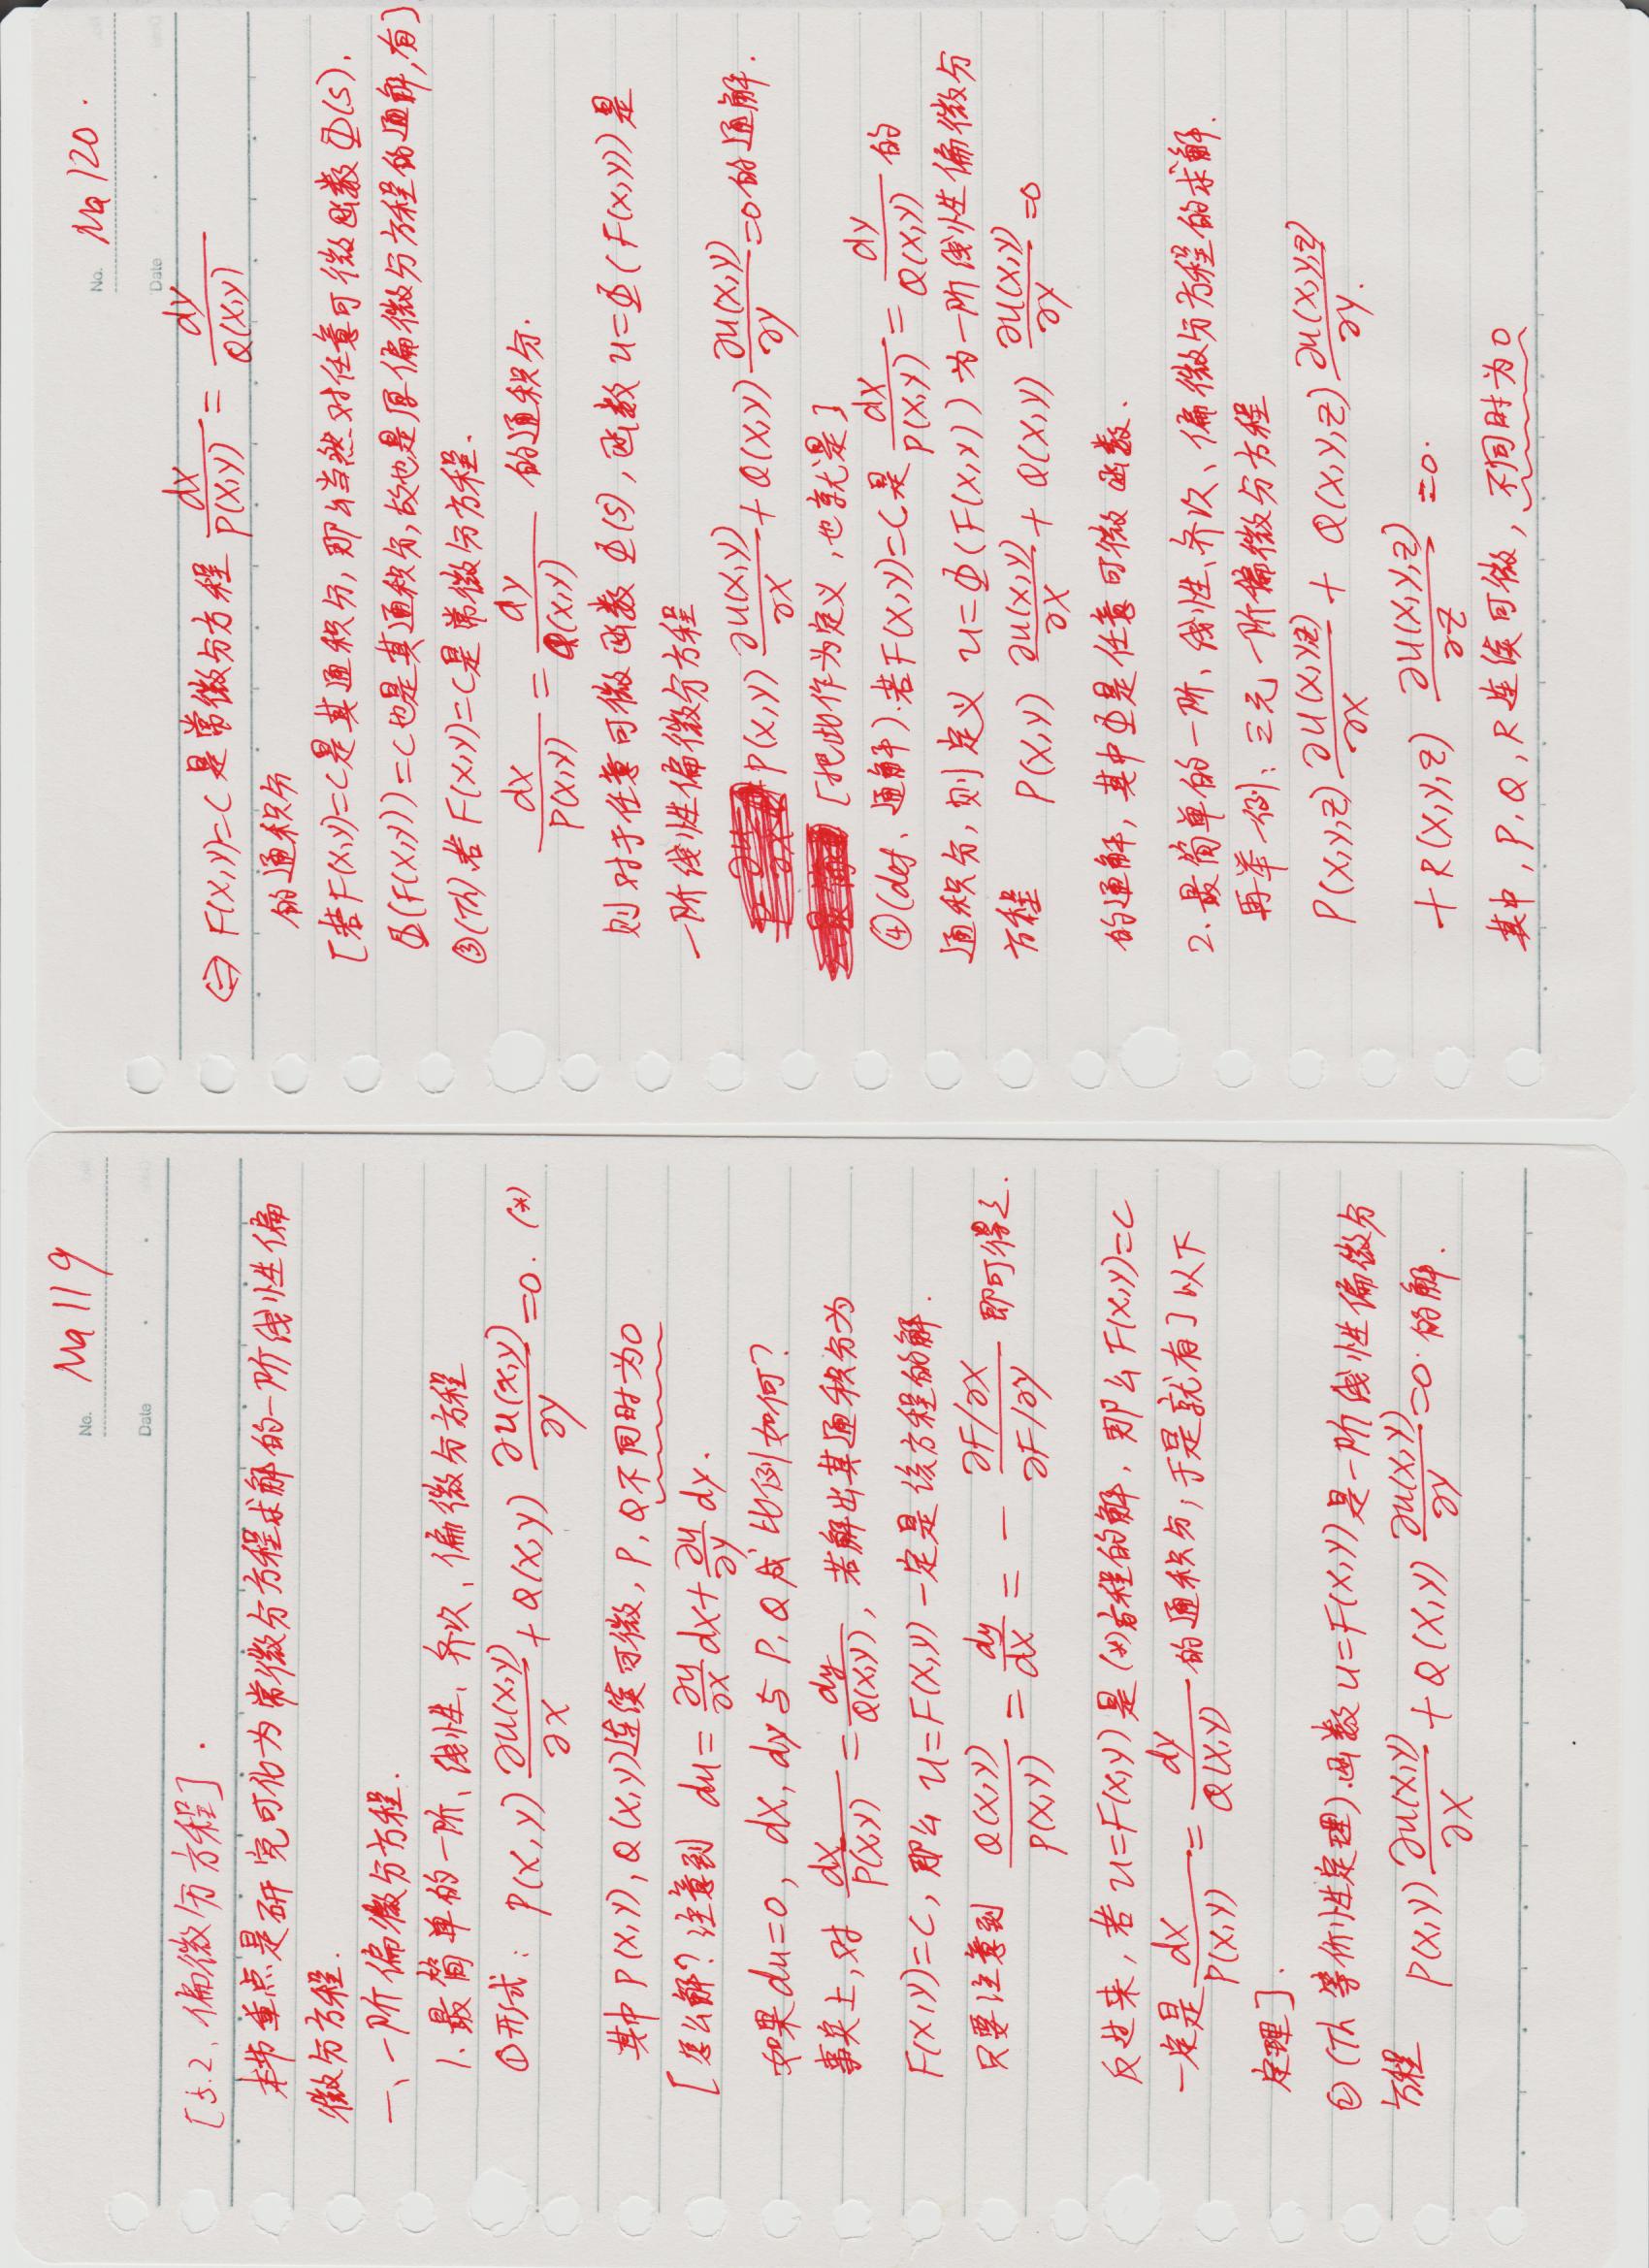 No. Ma 119
Date
[5.2、偏微分方程].
本节重点是研究可化为常微分方程求解的一阶线性偏
微分方程.
一、一阶偏微分方程.
1. 最简单的一阶、线性、齐次、偏微分方程
①形式: P(x,y) ∂u(x,y)/∂x + Q(x,y) ∂u(x,y)/∂y = 0. (*)
其中 P(x,y), Q(x,y)连续可微, P, Q不同时为0
[怎么解? 注意到 du = ∂u/∂x dx + ∂u/∂y dy.
如果 du=0, dx, dy 与 P, Q 成比例如何?
事实上, 对 dx/P(x,y) = dy/Q(x,y), 若解出其通积分为
F(x,y)=C, 那么 u=F(x,y) 一定是该方程的解.
只要注意到 Q(x,y)/P(x,y) = dy/dx = - (∂F/∂x)/(∂F/∂y) 即可得之.
反过来, 若 u=F(x,y) 是 (*)方程的解, 那么 F(x,y)=C
一定是 dx/P(x,y) = dy/Q(x,y) 的通积分, 于是就有] 以下
定理].
② (Th 等价性定理). 函数 u=F(x,y) 是一阶线性偏微分
方程 P(x,y) ∂u(x,y)/∂x + Q(x,y) ∂u(x,y)/∂y = 0. 的解.
No. Ma 120.
Date
⇔ F(x,y)=C 是常微分方程 dx/P(x,y) = dy/Q(x,y)
的通积分
[若F(x,y)=C是其通积分, 那么当然对任意可微函数 Φ(s).
Φ(F(x,y))=C也是其通积分, 故也是原偏微分方程的通解, 有]
③(Th) 若 F(x,y)=C是常微分方程.
dx/P(x,y) = dy/Q(x,y) 的通积分.
则对于任意可微函数 Φ(s), 函数 u=Φ(F(x,y)) 是
一阶线性偏微分方程
P(x,y) ∂u(x,y)/∂x + Q(x,y) ∂u(x,y)/∂y = 0 的通解.
[把此作为定义, 也就是]
④(def、通解). 若F(x,y)=C是 dx/P(x,y) = dy/Q(x,y) 的
通积分, 则定义 u=Φ(F(x,y)) 为一阶线性偏微分
方程 P(x,y) ∂u(x,y)/∂x + Q(x,y) ∂u(x,y)/∂y = 0
的通解, 其中Φ是任意可微函数.
2. 最简单的一阶、线性、齐次、偏微分方程的求解.
再举一例: 三元一阶偏微分方程
P(x,y,z) ∂u(x,y,z)/∂x + Q(x,y,z) ∂u(x,y,z)/∂y.
+ R(x,y,z) ∂u(x,y,z)/∂z = 0.
其中, P, Q, R 连续可微, 不同时为0